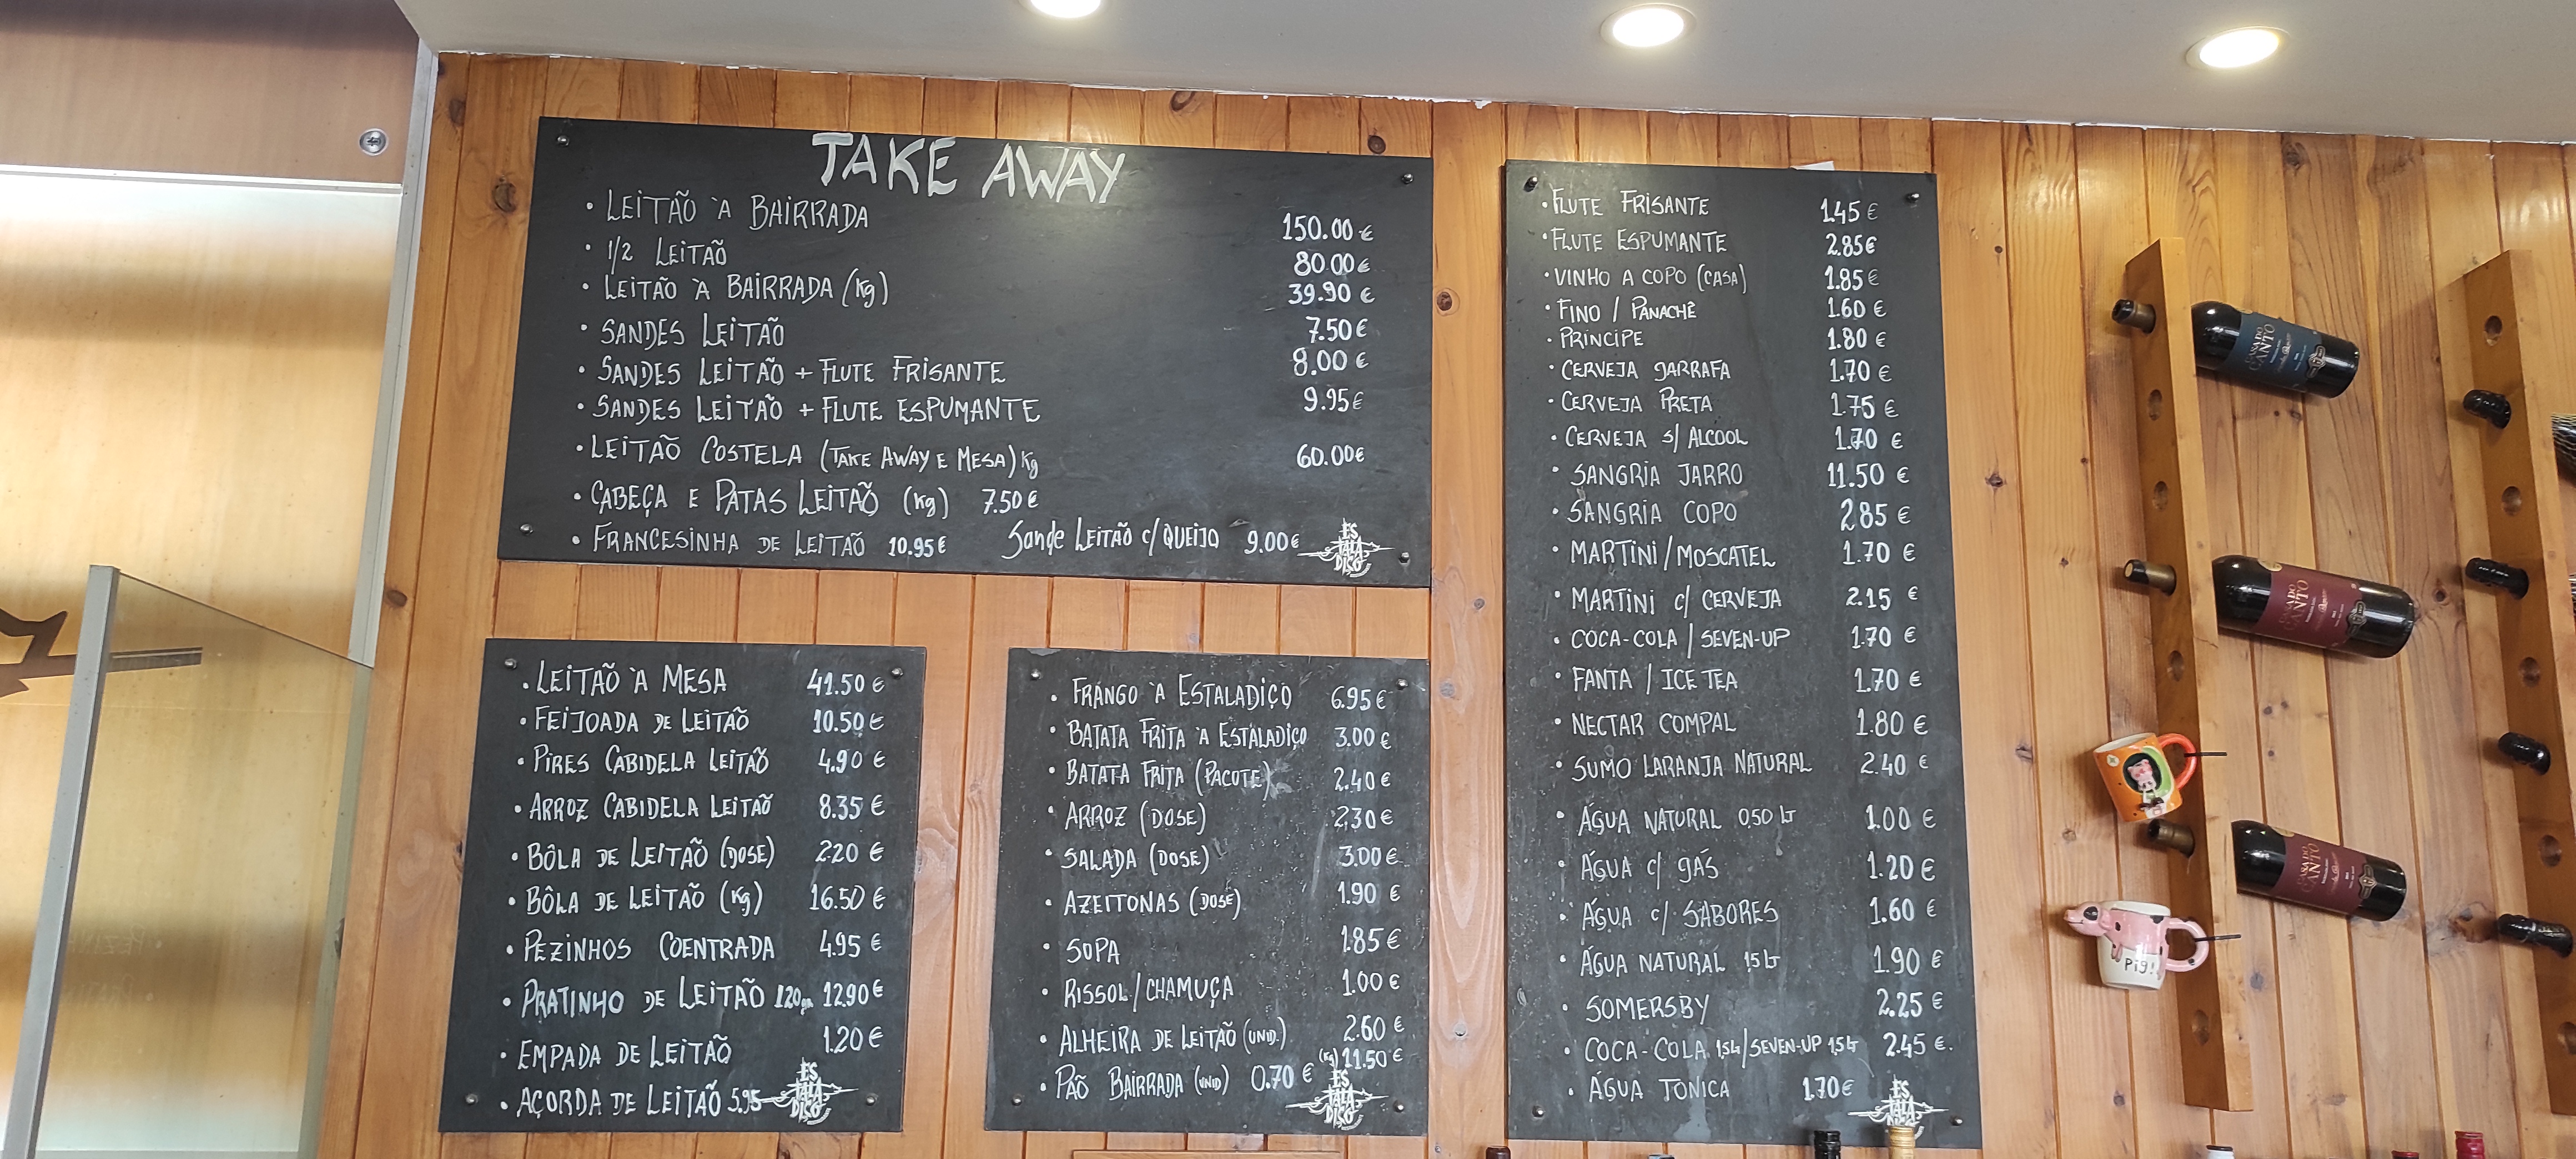 TAKE AWAY
• LEITÃO À BAIRRADA 150.00 €
• 1/2 LEITÃO 80.00 €
• LEITÃO À BAIRRADA (Kg) 39.90 €
• SANDES LEITÃO 7.50 €
• SANDES LEITÃO + FLUTE FRISANTE 8.00 €
• SANDES LEITÃO + FLUTE ESPUMANTE 9.95 €
• LEITÃO COSTELA (TAKE AWAY E MESA) Kg 60.00 €
• CABEÇA E PATAS LEITÃO (Kg) 7.50 €
• FRANCESINHA DE LEITÃO 10.95 € Sande LEITÃO c/ QUEIJO 9.00 €
ES
TALA
DIÇO
• LEITÃO À MESA 41.50 €
• FEIJOADA DE LEITÃO 10.50 €
• PIRES CABIDELA LEITÃO 4.90 €
• ARROZ CABIDELA LEITÃO 8.35 €
• BÔLA DE LEITÃO (DOSE) 2.20 €
• BÔLA DE LEITÃO (Kg) 16.50 €
• PEZINHOS COENTRADA 4.95 €
• PRATINHO DE LEITÃO 120gr 12.90 €
• EMPADA DE LEITÃO 1.20 €
• AÇORDA DE LEITÃO 5.95
ES
TALA
DIÇO
• FRANGO À ESTALADIÇO 6.95 €
• BATATA FRITA À ESTALADIÇO 3.00 €
• BATATA FRITA (PACOTE) 2.40 €
• ARROZ (DOSE) 2.30 €
• SALADA (DOSE) 3.00 €
• AZEITONAS (DOSE) 1.90 €
• SOPA 1.85 €
• RISSOL/CHAMUÇA 1.00 €
• ALHEIRA DE LEITÃO (UNID.) 2.60 €
(Kg) 11.50 €
• PÃO BAIRRADA (UNID) 0.70 €
ES
TALA
DIÇO
• FLUTE FRISANTE 1.45 €
• FLUTE ESPUMANTE 2.85 €
• VINHO A COPO (CASA) 1.85 €
• FINO / PANACHÊ 1.60 €
• PRINCIPE 1.80 €
• CERVEJA GARRAFA 1.70 €
• CERVEJA PRETA 1.75 €
• CERVEJA S/ ALCOOL 1.70 €
• SANGRIA JARRO 11.50 €
• SANGRIA COPO 2.85 €
• MARTINI/MOSCATEL 1.70 €
• MARTINI c/ CERVEJA 2.15 €
• COCA-COLA / SEVEN-UP 1.70 €
• FANTA / ICE TEA 1.70 €
• NECTAR COMPAL 1.80 €
• SUMO LARANJA NATURAL 2.40 €
• ÁGUA NATURAL 0,50 LT 1.00 €
• ÁGUA c/ GÁS 1.20 €
• ÁGUA c/ SABORES 1.60 €
• ÁGUA NATURAL 1,5 LT 1.90 €
• SOMERSBY 2.25 €
• COCA-COLA 1,5 Lt / SEVEN-UP 1,5 LT 2.45 €.
• ÁGUA TONICA 1.70 €
ES
TALA
DIÇO
CASA DO
CANTO
CASA DO
CANTO
CASA DO
CANTO
Pig!